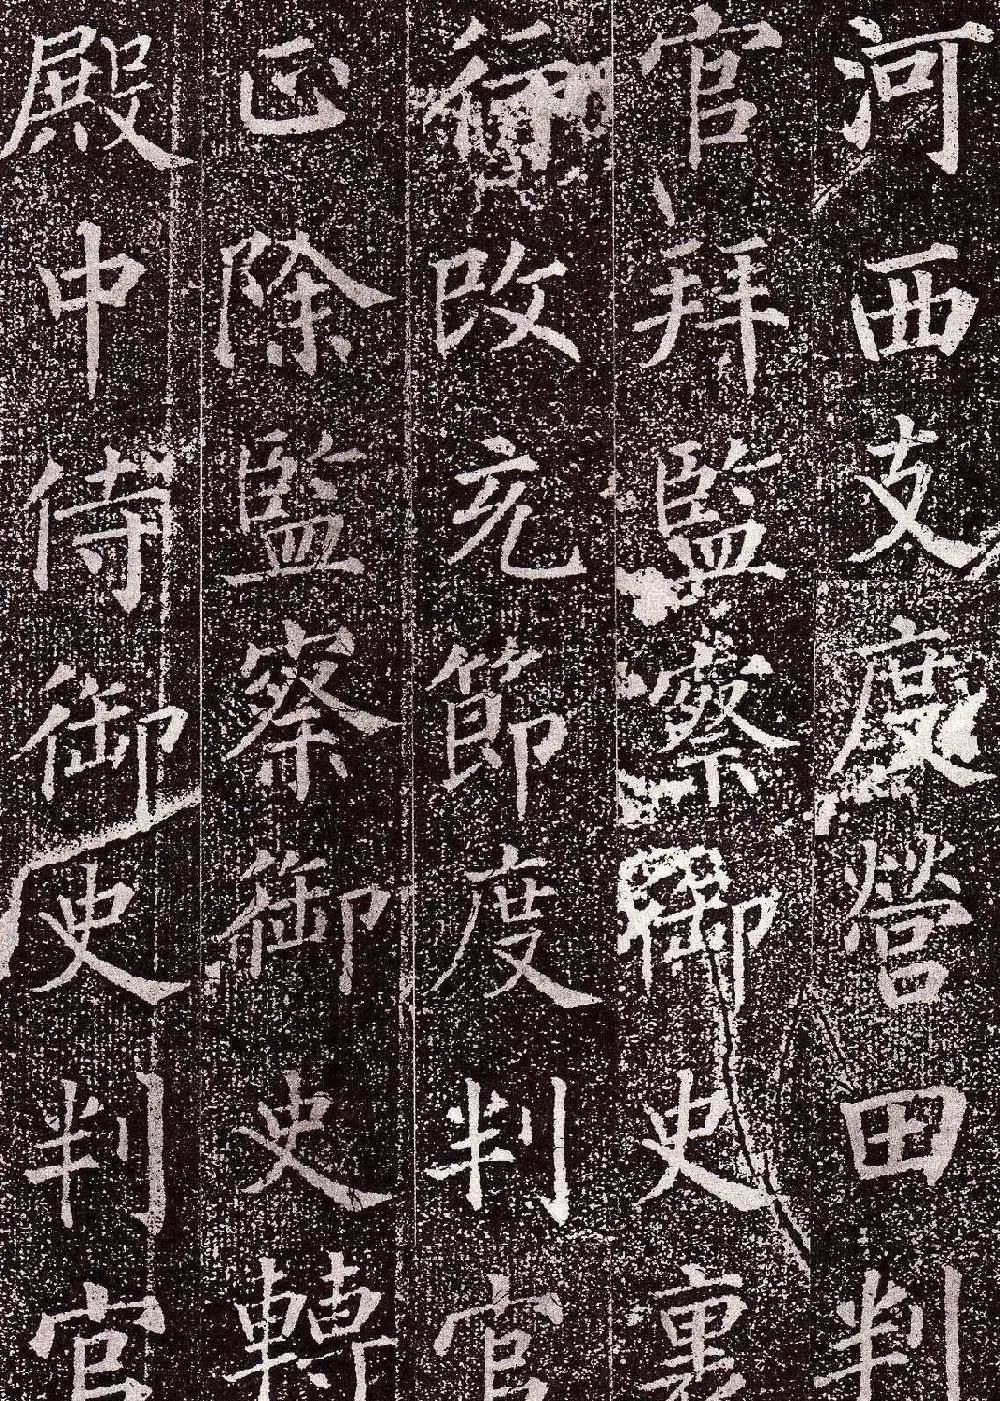 河西支度營田判
官拜監察御史裏
行改充節度判官
正除監察御史轉
殿中侍御史判官